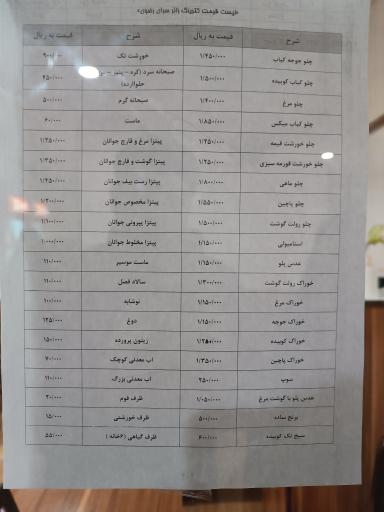 لیست قیمت کترینگ زائر سرای رضوان
شرح قیمت به ریال شرح قیمت به ریال
چلو جوجه کباب ۱/۴۵۰/۰۰۰ خورشت تک ۹۰۰/۰۰۰
چلو کباب کوبیده ۱/۵۰۰/۰۰۰ صبحانه سرد (کره – پنیر – حلواارده) ۴۵۰/۰۰۰
چلو مرغ ۱/۴۰۰/۰۰۰ صبحانه گرم ۵۰۰/۰۰۰
چلو کباب میکس ۱/۸۵۰/۰۰۰ ماست ۶۰/۰۰۰
چلو خورشت قیمه ۱/۲۵۰/۰۰۰ پیتزا مرغ و قارچ جوانان ۱/۳۵۰/۰۰۰
چلو خورشت قورمه سبزی ۱/۲۵۰/۰۰۰ پیتزا گوشت و قارچ جوانان ۱/۳۵۰/۰۰۰
چلو ماهی ۱/۸۰۰/۰۰۰ پیتزا رست بیف جوانان ۱/۴۵۰/۰۰۰
چلو پاچین ۱/۵۵۰/۰۰۰ پیتزا مخصوص جوانان ۱/۲۰۰/۰۰۰
چلو رولت گوشت ۱/۵۰۰/۰۰۰ پیتزا پپرونی جوانان ۱/۱۰۰/۰۰۰
استامبولی ۱/۱۵۰/۰۰۰ پیتزا مخلوط جوانان ۱/۰۰۰/۰۰۰
عدس پلو ۱/۱۵۰/۰۰۰ ماست موسیر ۱۱۰/۰۰۰
خوراک رولت گوشت ۱/۳۰۰/۰۰۰ سالاد فصل ۱۱۰/۰۰۰
خوراک مرغ ۱/۱۵۰/۰۰۰ نوشابه ۱۰۰/۰۰۰
خوراک جوجه ۱/۱۵۰/۰۰۰ دوغ ۱۲۵/۰۰۰
خوراک کوبیده ۱/۲۵۰/۰۰۰ زیتون پرورده ۱۵۰/۰۰۰
خوراک پاچین ۱/۳۵۰/۰۰۰ اب معدنی کوچک ۷۰/۰۰۰
سوپ ۲۵۰/۰۰۰ اب معدنی بزرگ ۱۱۰/۰۰۰
عدس پلو با گوشت مرغ ۱/۰۵۰/۰۰۰ ظرف فوم ۲۰/۰۰۰
برنج ساده ۵۰۰/۰۰۰ ظرف خورشتی ۱۵/۰۰۰
سیخ تک کوبیده ۶۰۰/۰۰۰ ظرف گیاهی (۶خانه ) ۵۵/۰۰۰